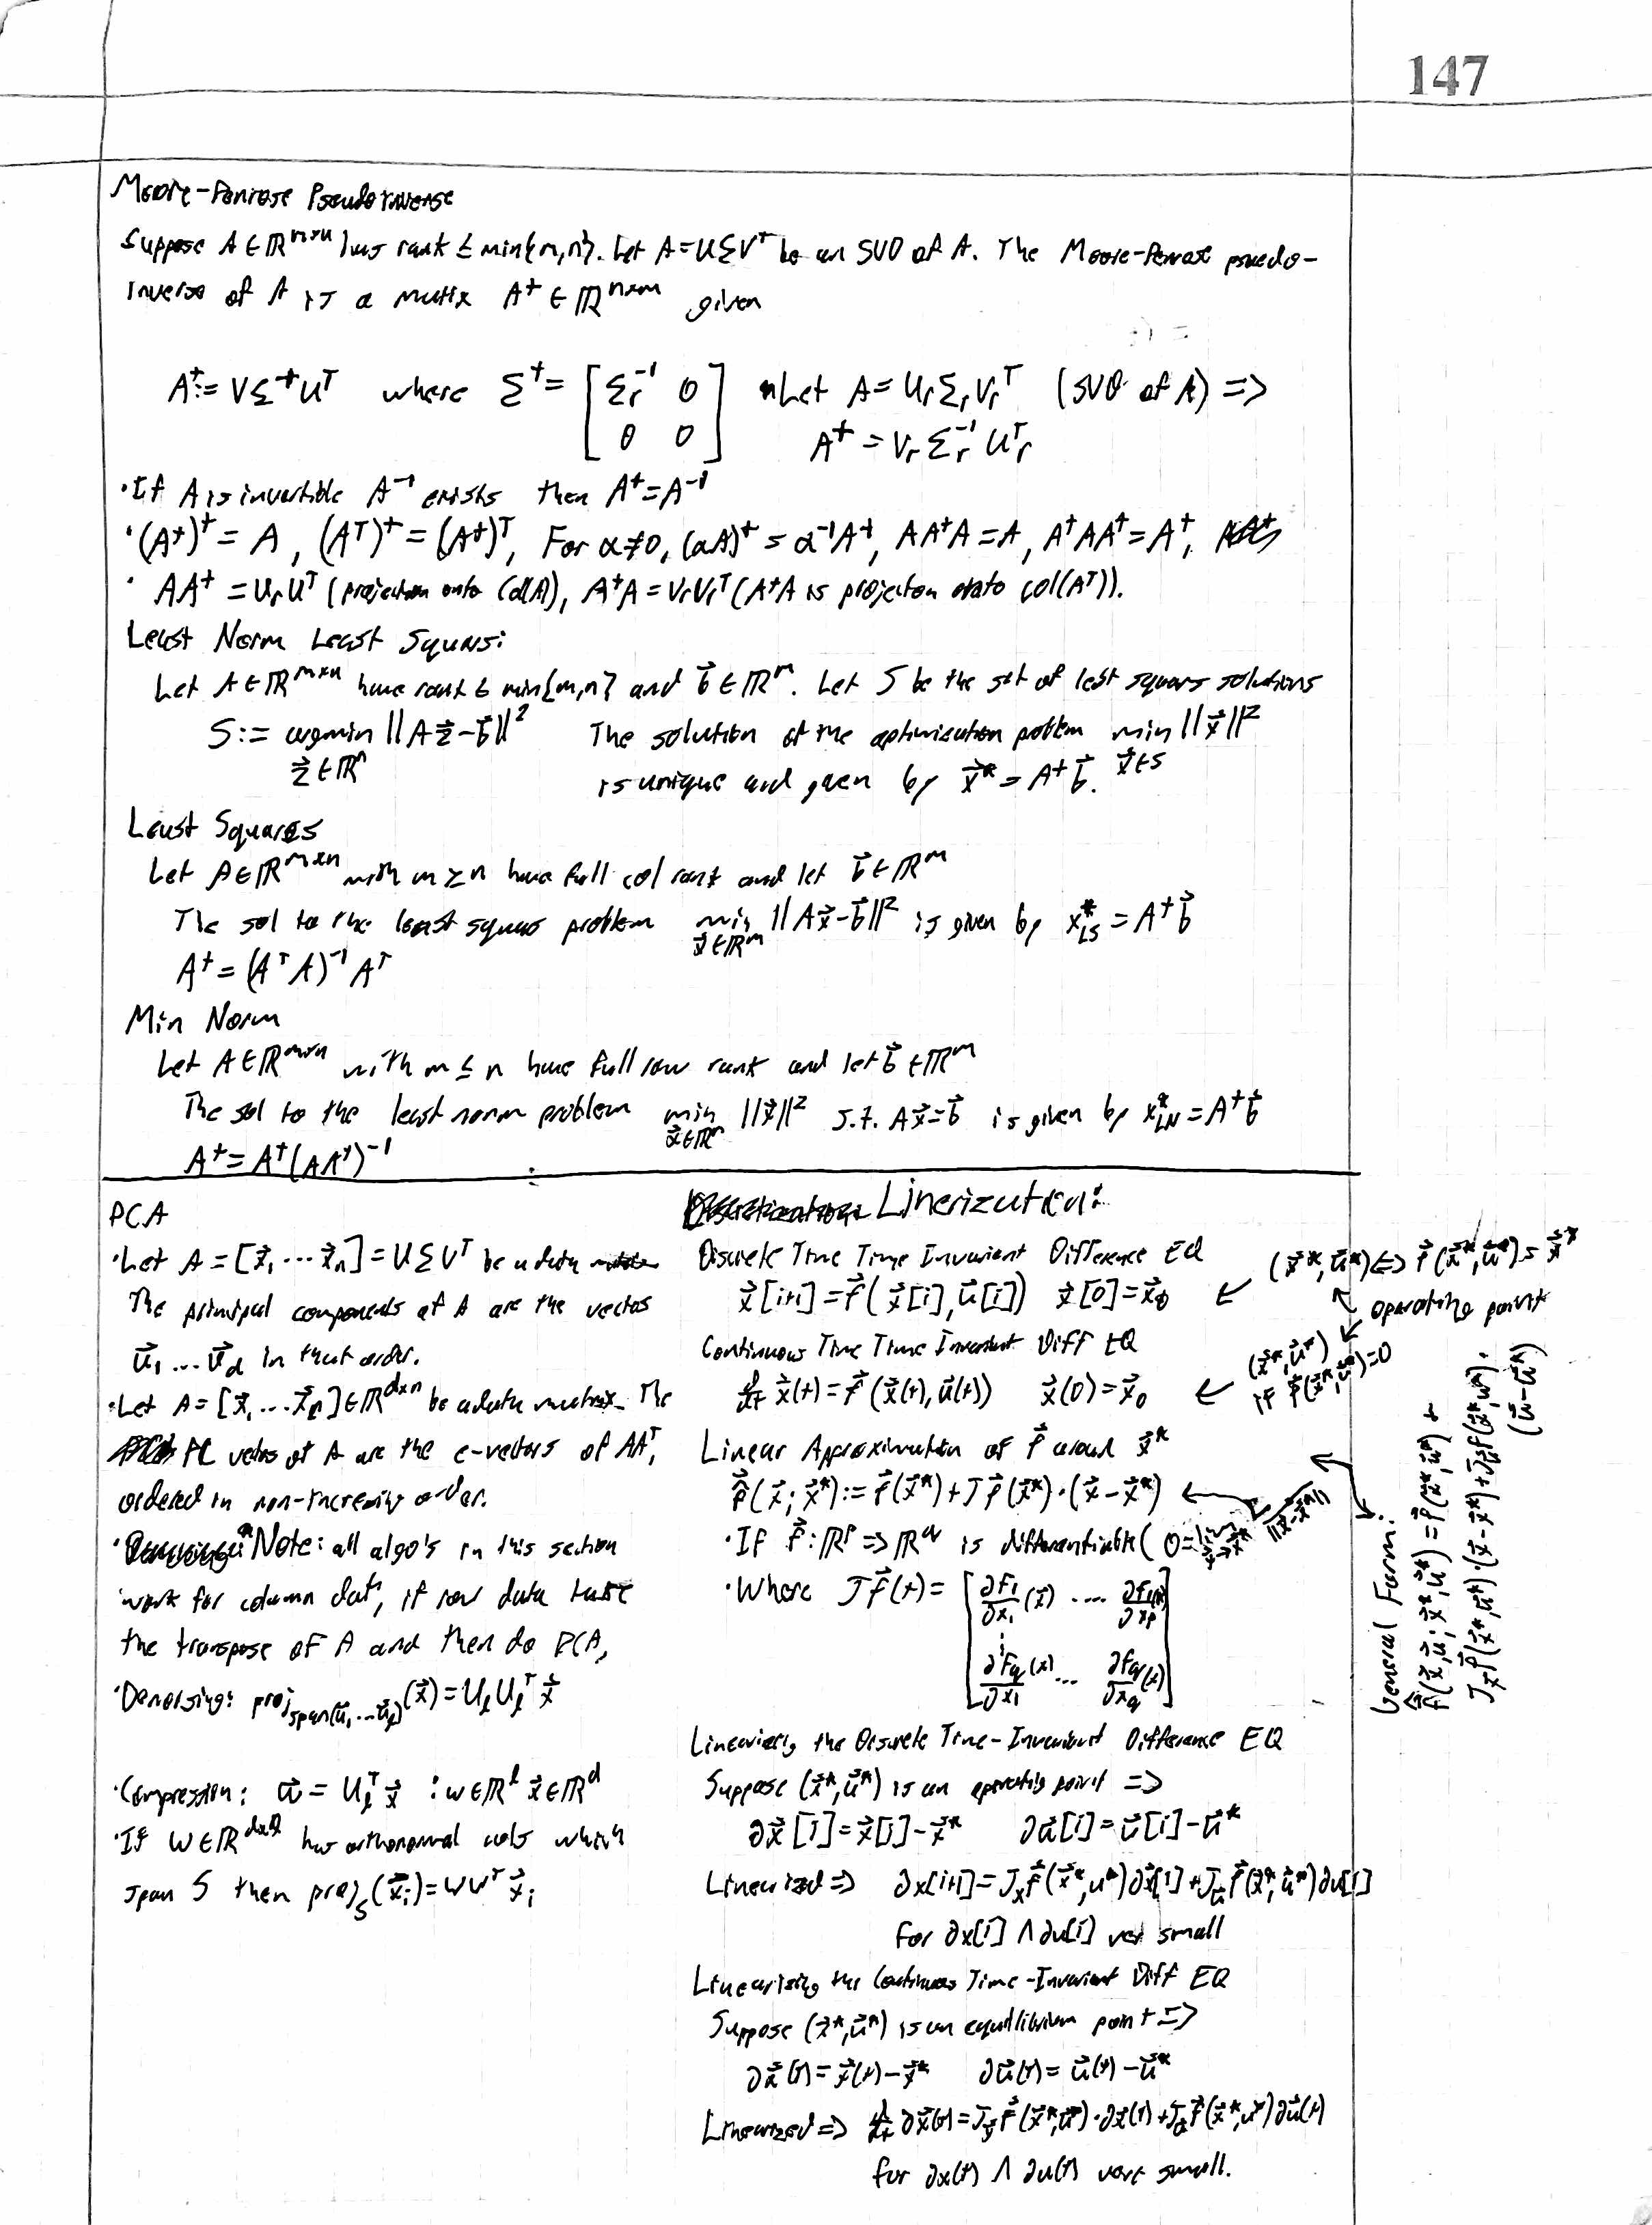 147
Moore-Penrose Pseudoinverse
Suppose A ∈ ℝ^{m×n} has rank ≤ min{m,n}. Let A=UΣV^T be an SVD of A. The Moore-Penrose psuedo-
inverse of A is a matrix A^+ ∈ ℝ^{n×m} given
A^+:= VΣ^+U^T where Σ^+ = [Σ_r^{-1} 0; 0 0] Let A = U_rΣ_rV_r^T (SVD of A) =>
A^+ = V_rΣ_r^{-1}U_r^T
·If A is invertible A^{-1} exists then A^+=A^{-1}
·(A^+)^+ = A, (A^T)^+ = (A^+)^T, For α≠0, (αA)^+ = α^{-1}A^+, AA^+A = A, A^+AA^+ = A^+,
· AA^+ = U_rU^T (projection onto Col(A)), A^+A = V_rV_r^T (A^+A is projection onto col(A^T)).
Least Norm Least Squars:
Let A∈ℝ^{m×n} have rank ≤ min{m,n} and b⃗ ∈ ℝ^m. Let S be the set of least squars solutions
S := argmin_{z⃗∈ℝ^n} ||Az⃗-b⃗||^2 The solution of the optimization problem min_{x⃗∈S} ||x⃗||^2
is unique and given by x⃗* = A^+b⃗.
Least Squares
Let A∈ℝ^{m×n} with m ≥ n have full col rank and let b⃗∈ℝ^m
The sol to the least squares problem min_{x⃗∈ℝ^m} ||Ax⃗-b⃗||^2 is given by x*_{LS} = A^+b⃗
A^+ = (A^T A)^{-1} A^T
Min Norm
Let A∈ℝ^{m×n} with m ≤ n have full row rank and let b⃗∈ℝ^m
The sol to the least norm problem min_{x⃗∈ℝ^n} ||x⃗||^2 s.t. Ax⃗=b⃗ is given by x*_{LN} = A^+b⃗
A^+ = A^T(AA^T)^{-1}
PCA
·Let A = [x⃗_1 ··· x⃗_n] = UΣV^T be a data
The principal components of A are the vectors
u⃗_1 ... u⃗_d in that order.
·Let A = [x⃗_1 ... x⃗_n]∈ℝ^{d×n} be a data matrix. The
PC vectors of A are the e-vectors of AA^T,
ordered in non-increasing order.
·*Note: all algo's in this section
work for column data, if row data take
the transpose of A and then do PCA,
·Denoising: proj_{span(u⃗_1 ... u⃗_l)}(x⃗) = U_l U_l^T x⃗
·Compression: w⃗ = U_l^T x⃗ : w∈ℝ^l x⃗∈ℝ^d
·If W∈ℝ^{d×l} has orthonormal cols which
span S then proj_S(x⃗_i) = WW^T x⃗_i
Linerization:
Discrete Time Time Invariant Difference EQ
x⃗[i+1] = f⃗(x⃗[i], u⃗[i]) x⃗[0] = x⃗_0 ←
(x⃗*, u⃗*) <=> f⃗(x⃗*, u⃗*) = x⃗*
operating point
Continuous Time Time Invariant Diff EQ
d/dt x⃗(t) = f⃗(x⃗(t), u⃗(t)) x⃗(0) = x⃗_0 ←
(x⃗*, u⃗*)
if f⃗(x⃗*, u⃗*)=0
Linear Approximation of f⃗ around x⃗*
f̂⃗(x⃗; x⃗*) := f⃗(x⃗*) + Jf⃗(x⃗*)·(x⃗-x⃗*) ←
·If f⃗: ℝ^p => ℝ^q is differentiable ( 0 = lim_{x⃗→x⃗*} ||x⃗-x⃗*||
·Where Jf⃗(t) = [∂f_1/∂x_1 (x⃗) .... ∂f_1/∂x_p (x); ⋮ ∂f_q/∂x_1 (x) ... ∂f_q/∂x_q (x)]
General Form:
f̂⃗(x⃗,u⃗; x⃗*,u⃗*) = f⃗(x⃗*,u⃗*) +
J_x⃗ f⃗(x⃗*,u⃗*)·(x⃗-x⃗*) + J_u⃗ f(x⃗*,u⃗*)·
(u⃗-u⃗*)
Linearizing the Discrete Time-Invariant Difference EQ
Suppose (x⃗*,u⃗*) is an operating point =>
∂x⃗[i] = x⃗[i]-x⃗* ∂u⃗[i] = u⃗[i]-u⃗*
Linearized => ∂x[i+1] = J_x f⃗(x⃗*,u*)∂x⃗[i] + J_u⃗ f⃗(x⃗*,u⃗*)∂u[i]
for ∂x[i] ∧ ∂u[i] very small
Linearizing the Continuous Time-Invariant Diff EQ
Suppose (x⃗*,u⃗*) is an equilibrium point =>
∂x⃗(t) = x⃗(t)-x⃗* ∂u⃗(t) = u⃗(t)-u⃗*
Linearized => d/dt ∂x⃗(t) = J_x⃗ f⃗(x⃗*,u⃗*)·∂x⃗(t) + J_u⃗ f⃗(x⃗*,u*)∂u⃗(t)
for ∂x(t) ∧ ∂u(t) very small.